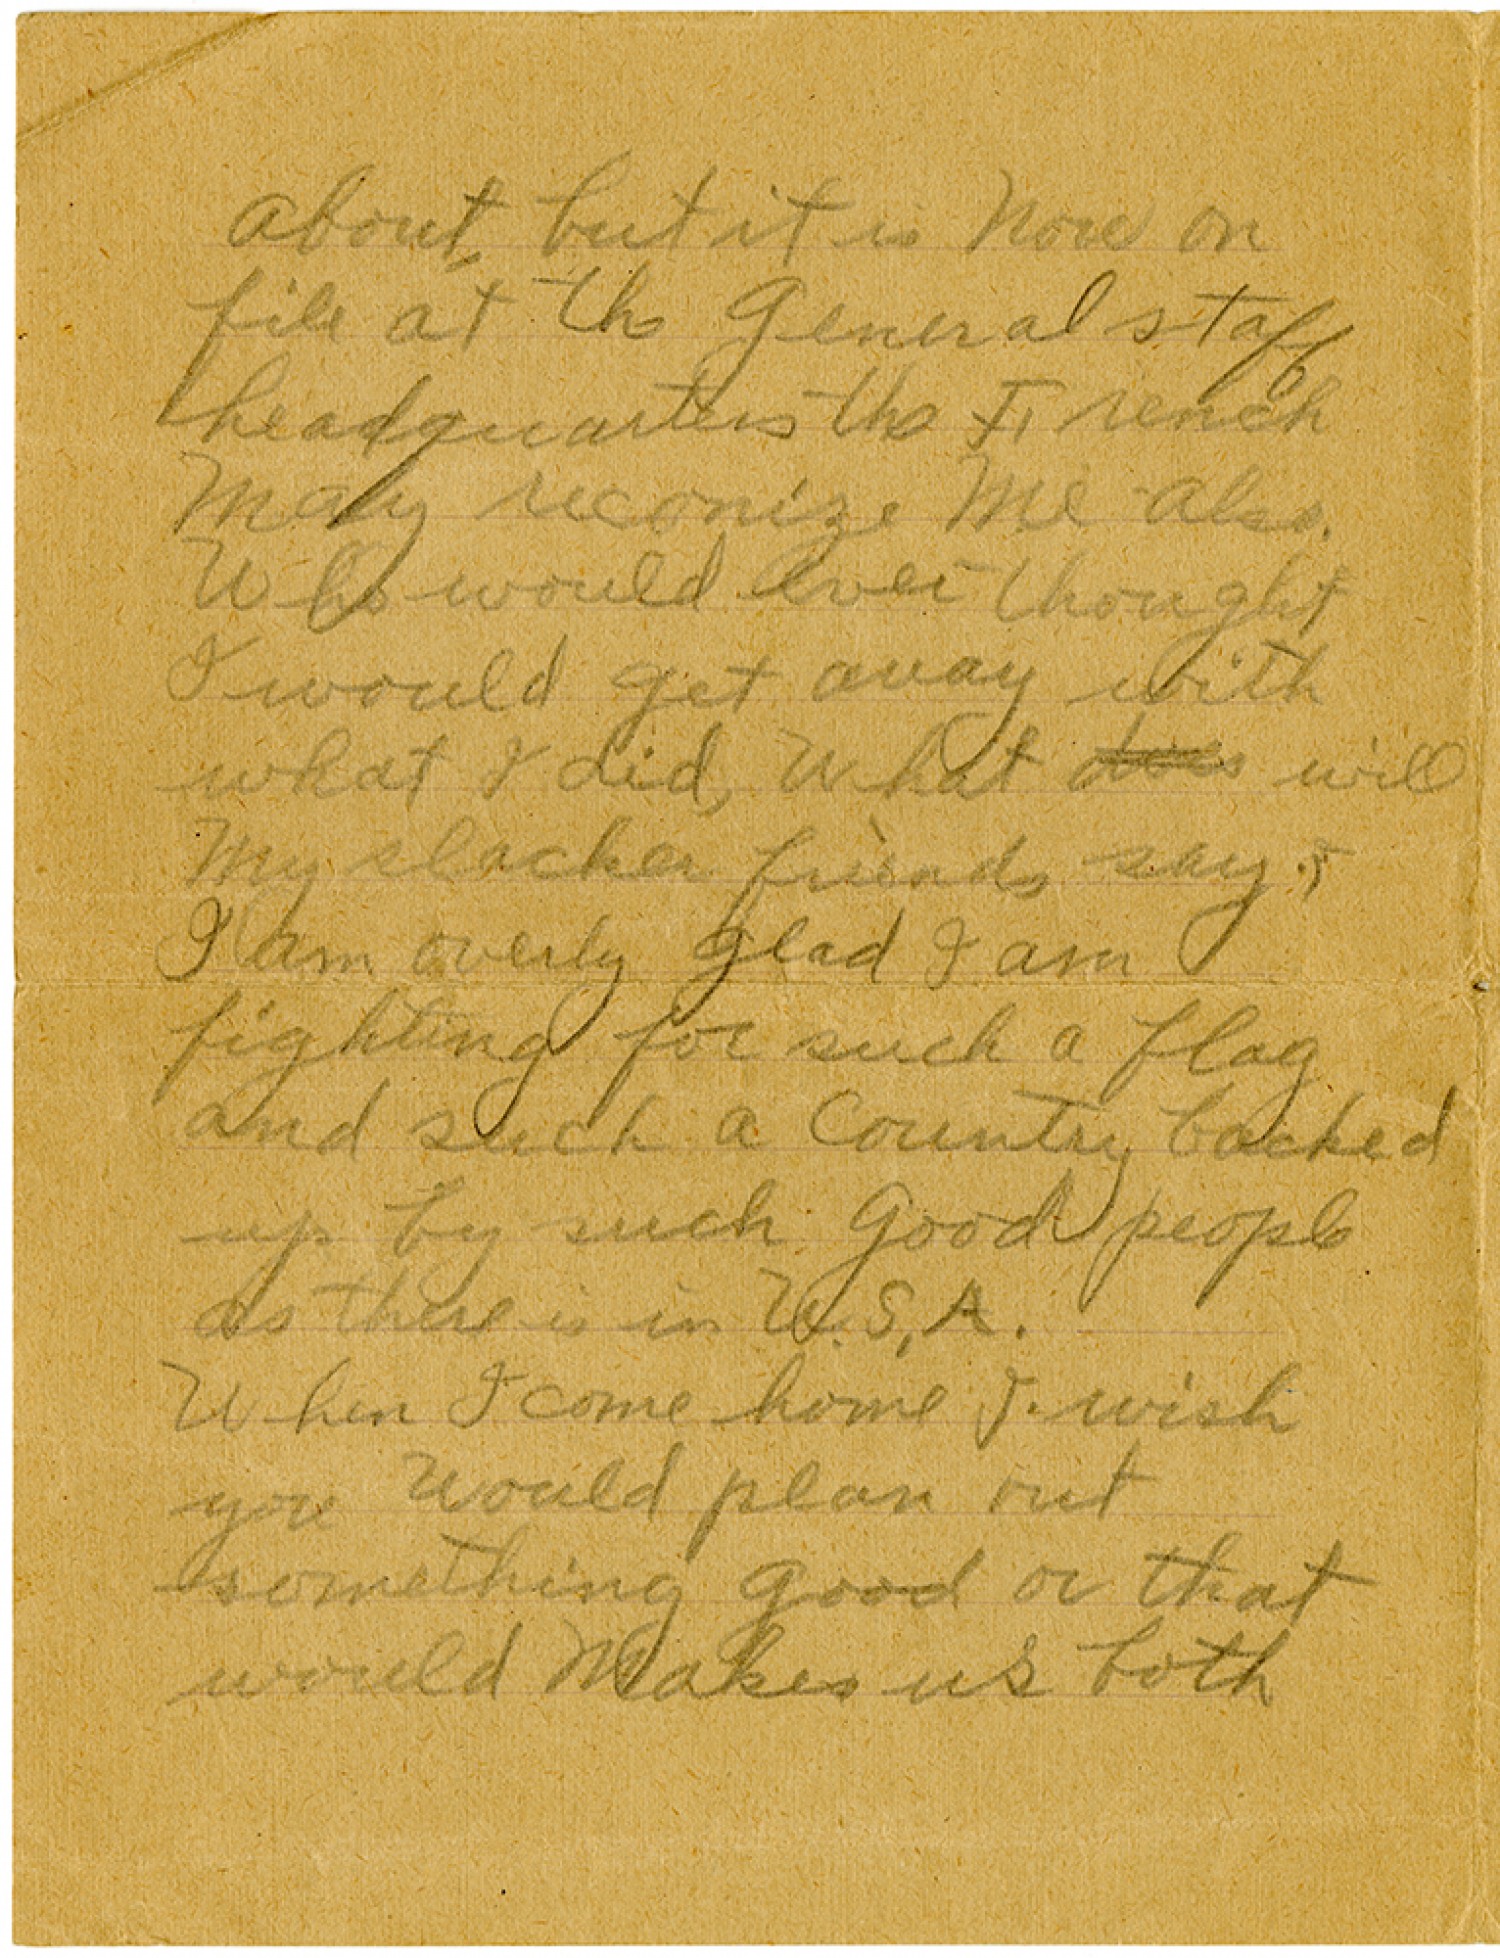 about, but it is Now on
file at the General staff
headquarters the French
May reconize Me also.
Who would ever thought
I would get away with
what I did, What does will
My slacker friends say?
I am overly glad I am
fighting for such a flag
and such a Country backed
up by such Good people
as there is in U.S.A.
When I come home I wish
you Would plan out
something good or that
would Makes us both